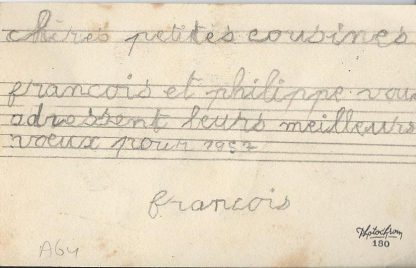 chères petites cousines
francois et philippe vous
adressent leurs meilleurs
voeux pour 1957
francois
A64
Photochrom
180